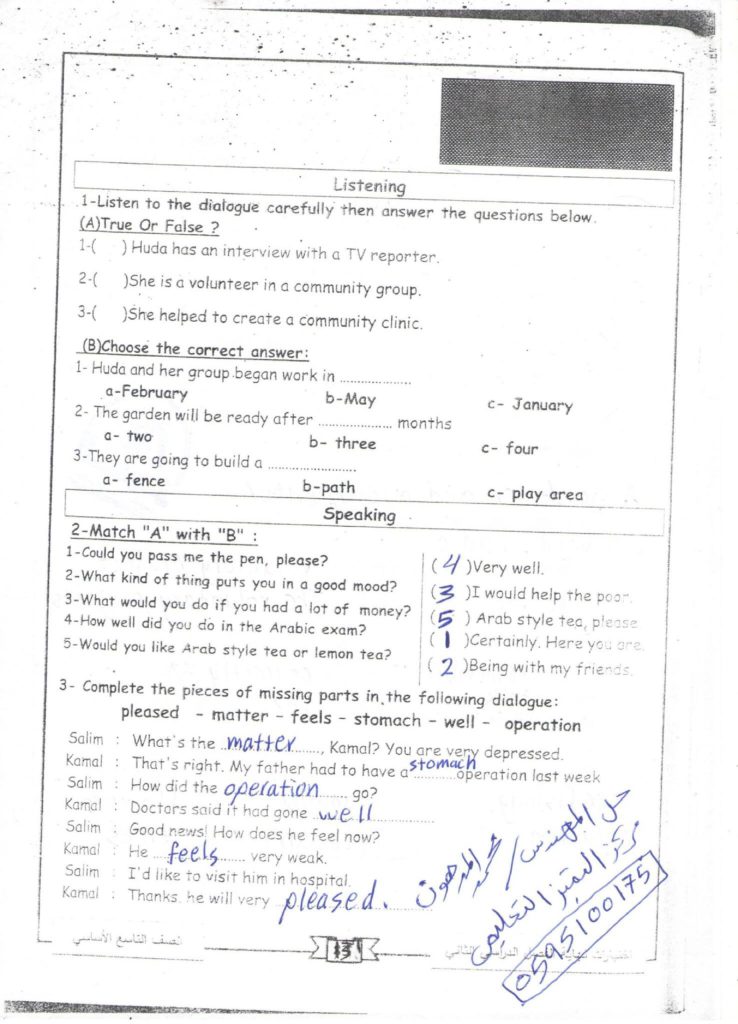 Listening
1-Listen to the dialogue carefully then answer the questions below.
(A)True Or False ?
1-(    ) Huda has an interview with a TV reporter.
2-(    )She is a volunteer in a community group.
3-(    )She helped to create a community clinic.
(B)Choose the correct answer:
1- Huda and her group began work in ....................
a-February b-May c- January
2- The garden will be ready after ..................... months
a- two b- three c- four
3-They are going to build a .........................
a- fence b-path c- play area
Speaking
2-Match "A" with "B" :
1-Could you pass me the pen, please? ( 4 )Very well.
2-What kind of thing puts you in a good mood? ( 3 )I would help the poor.
3-What would you do if you had a lot of money? ( 5 ) Arab style tea, please
4-How well did you do in the Arabic exam? ( 1 )Certainly. Here you are.
5-Would you like Arab style tea or lemon tea? ( 2 )Being with my friends.
3- Complete the pieces of missing parts in the following dialogue:
pleased - matter - feels - stomach - well - operation
Salim : What's the matter, Kamal? You are very depressed.
Kamal : That's right. My father had to have a stomach operation last week
Salim : How did the operation go?
Kamal : Doctors said it had gone well
Salim : Good news! How does he feel now?
Kamal : He feels very weak.
Salim : I'd like to visit him in hospital.
Kamal : Thanks. he will very pleased.
حل المهندس / محمد المدهون
مركز التميز التعليمي
0595100175
الصف التاسع الأساسي
13
نهاية الفصل الدراسي الثاني